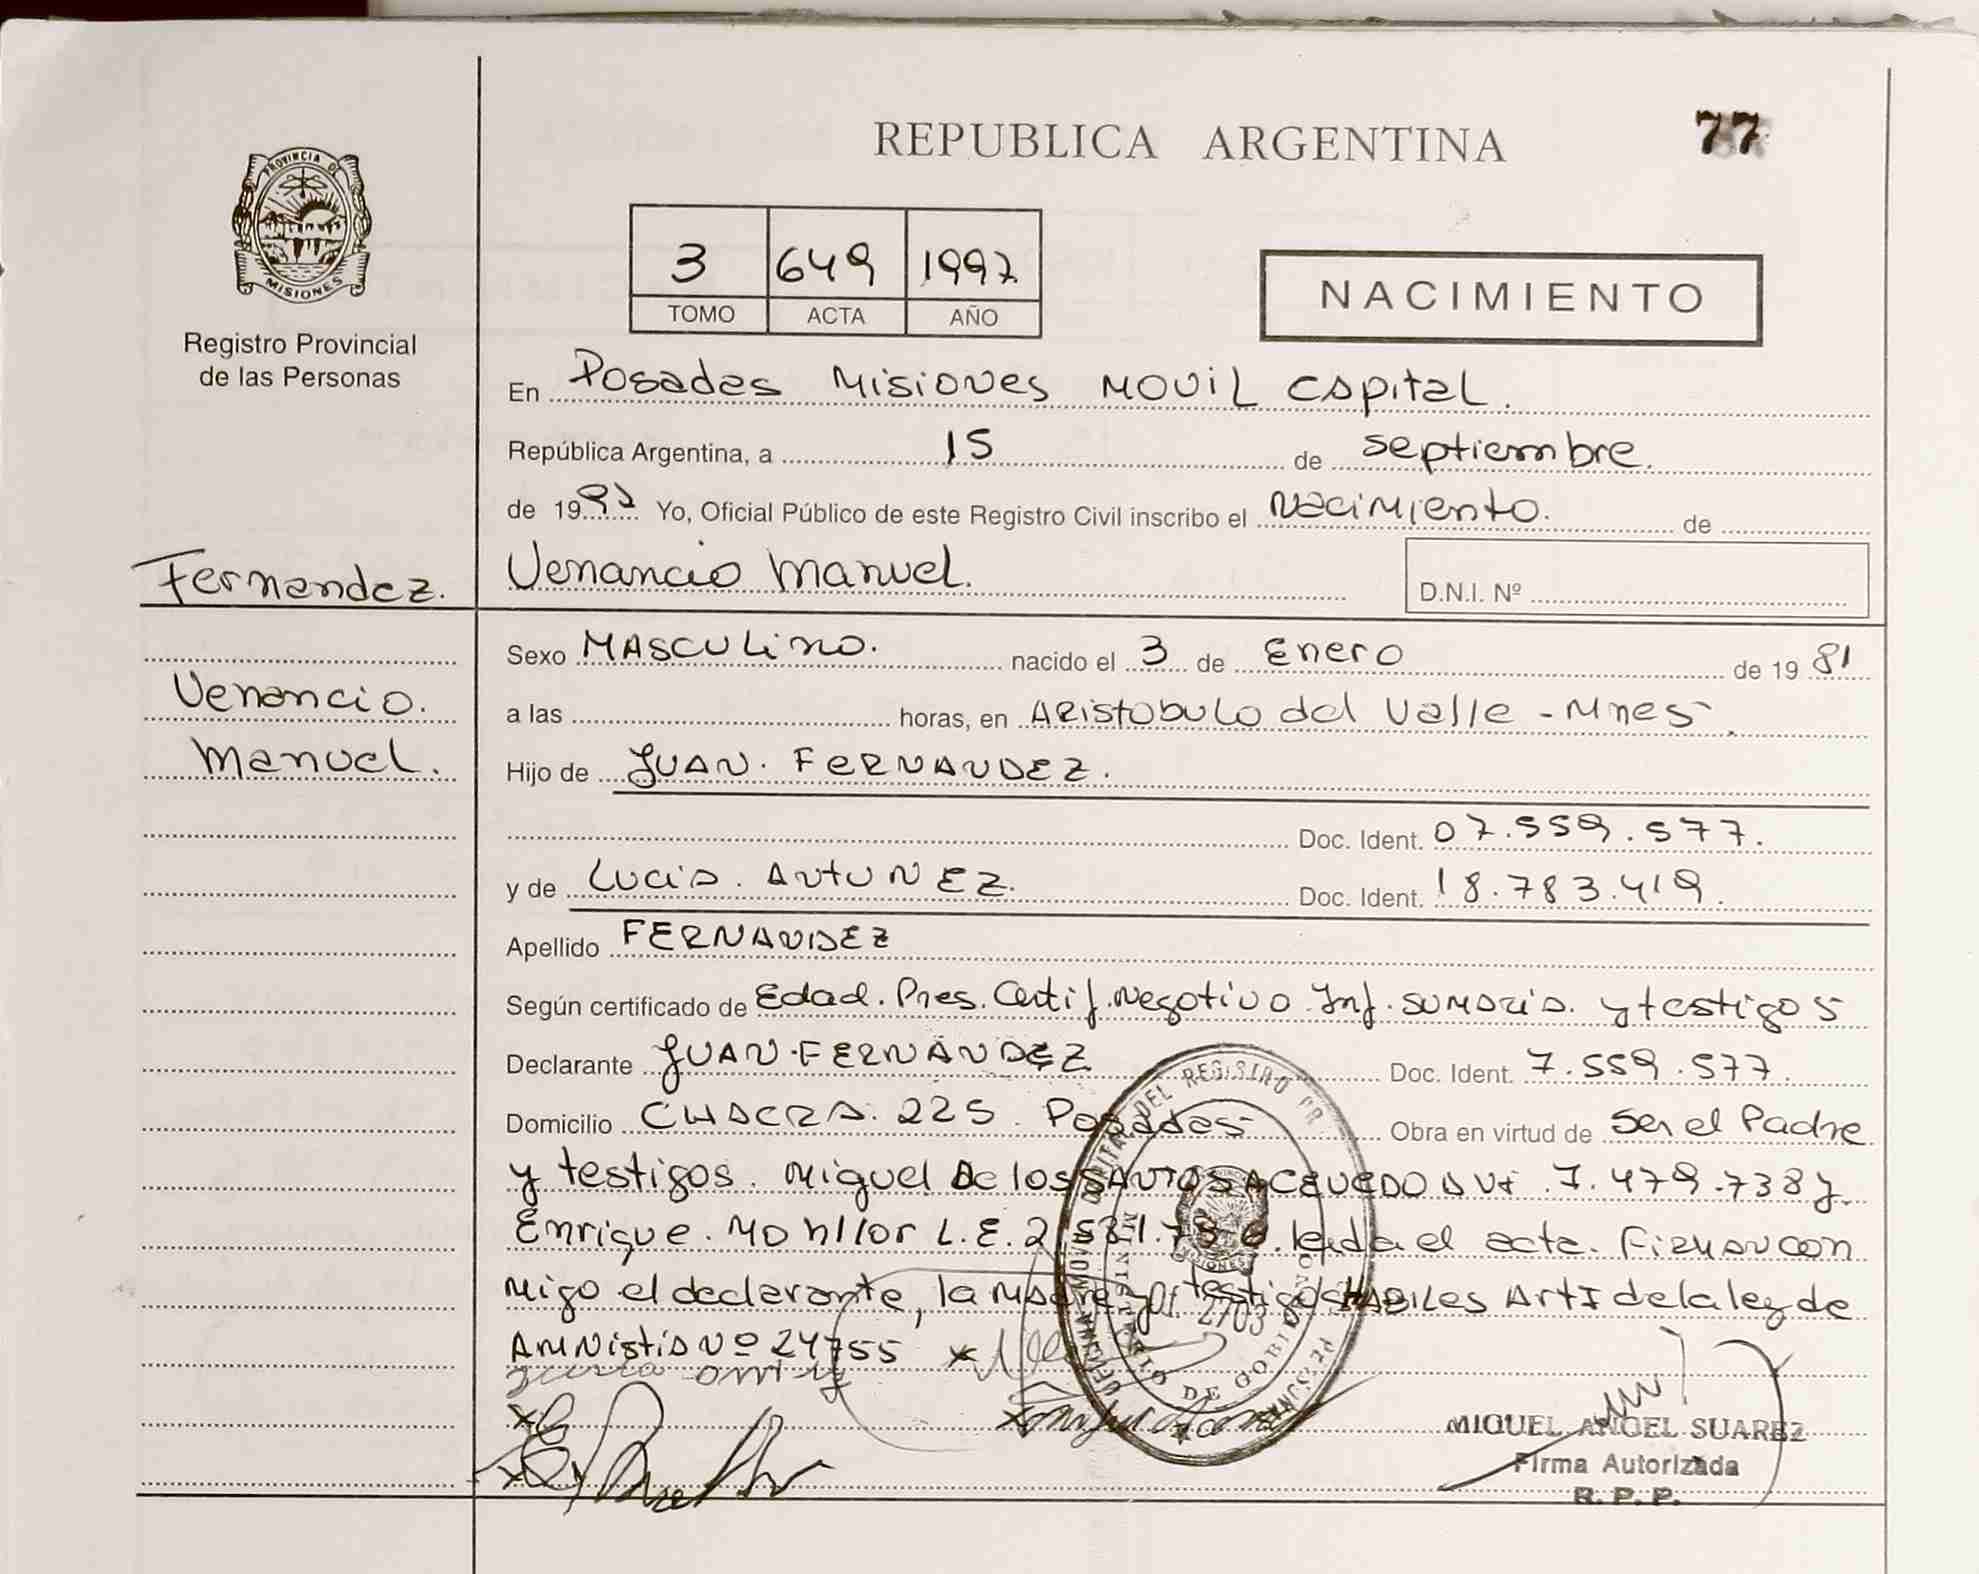 REPUBLICA ARGENTINA
77
PROVINCIA DE
MISIONES
Registro Provincial
de las Personas
3 649 1997
TOMO ACTA AÑO
NACIMIENTO
En Posadas Misiones Movil Capital.
República Argentina, a 15 de septiembre.
de 1997 Yo, Oficial Público de este Registro Civil inscribo el Nacimiento. de
Fernandez. Venancio Manuel.
D.N.I. Nº
Sexo MASCULINO. nacido el 3 de Enero de 19 81
Venancio.
a las horas, en ARistobulo del Valle - Mnes
Manuel.
Hijo de JUAN. FERNANDEZ.
Doc. Ident. 07.559.577.
y de Lucia. ANTUNEZ. Doc. Ident. 18.783.419.
Apellido FERNANDEZ
Según certificado de Edad. Pres. Certif. Negativo. Inf. sumaria. y testigos
Declarante JUAN. FERNANDEZ Doc. Ident. 7.559.577.
Domicilio CHACRA. 225. Posadas Obra en virtud de Ser el Padre
y testigos. Miguel De los SANTOS ACEVEDO DNI. 7.479.738 y.
Enrique. L.E. leida el acta. Firman con
migo el declarante, la Madre y testigos HABILES Art I de la ley de
AMNistia Nº 24755
MIGUEL ANGEL SUAREZ
Firma Autorizada
R. P. P.